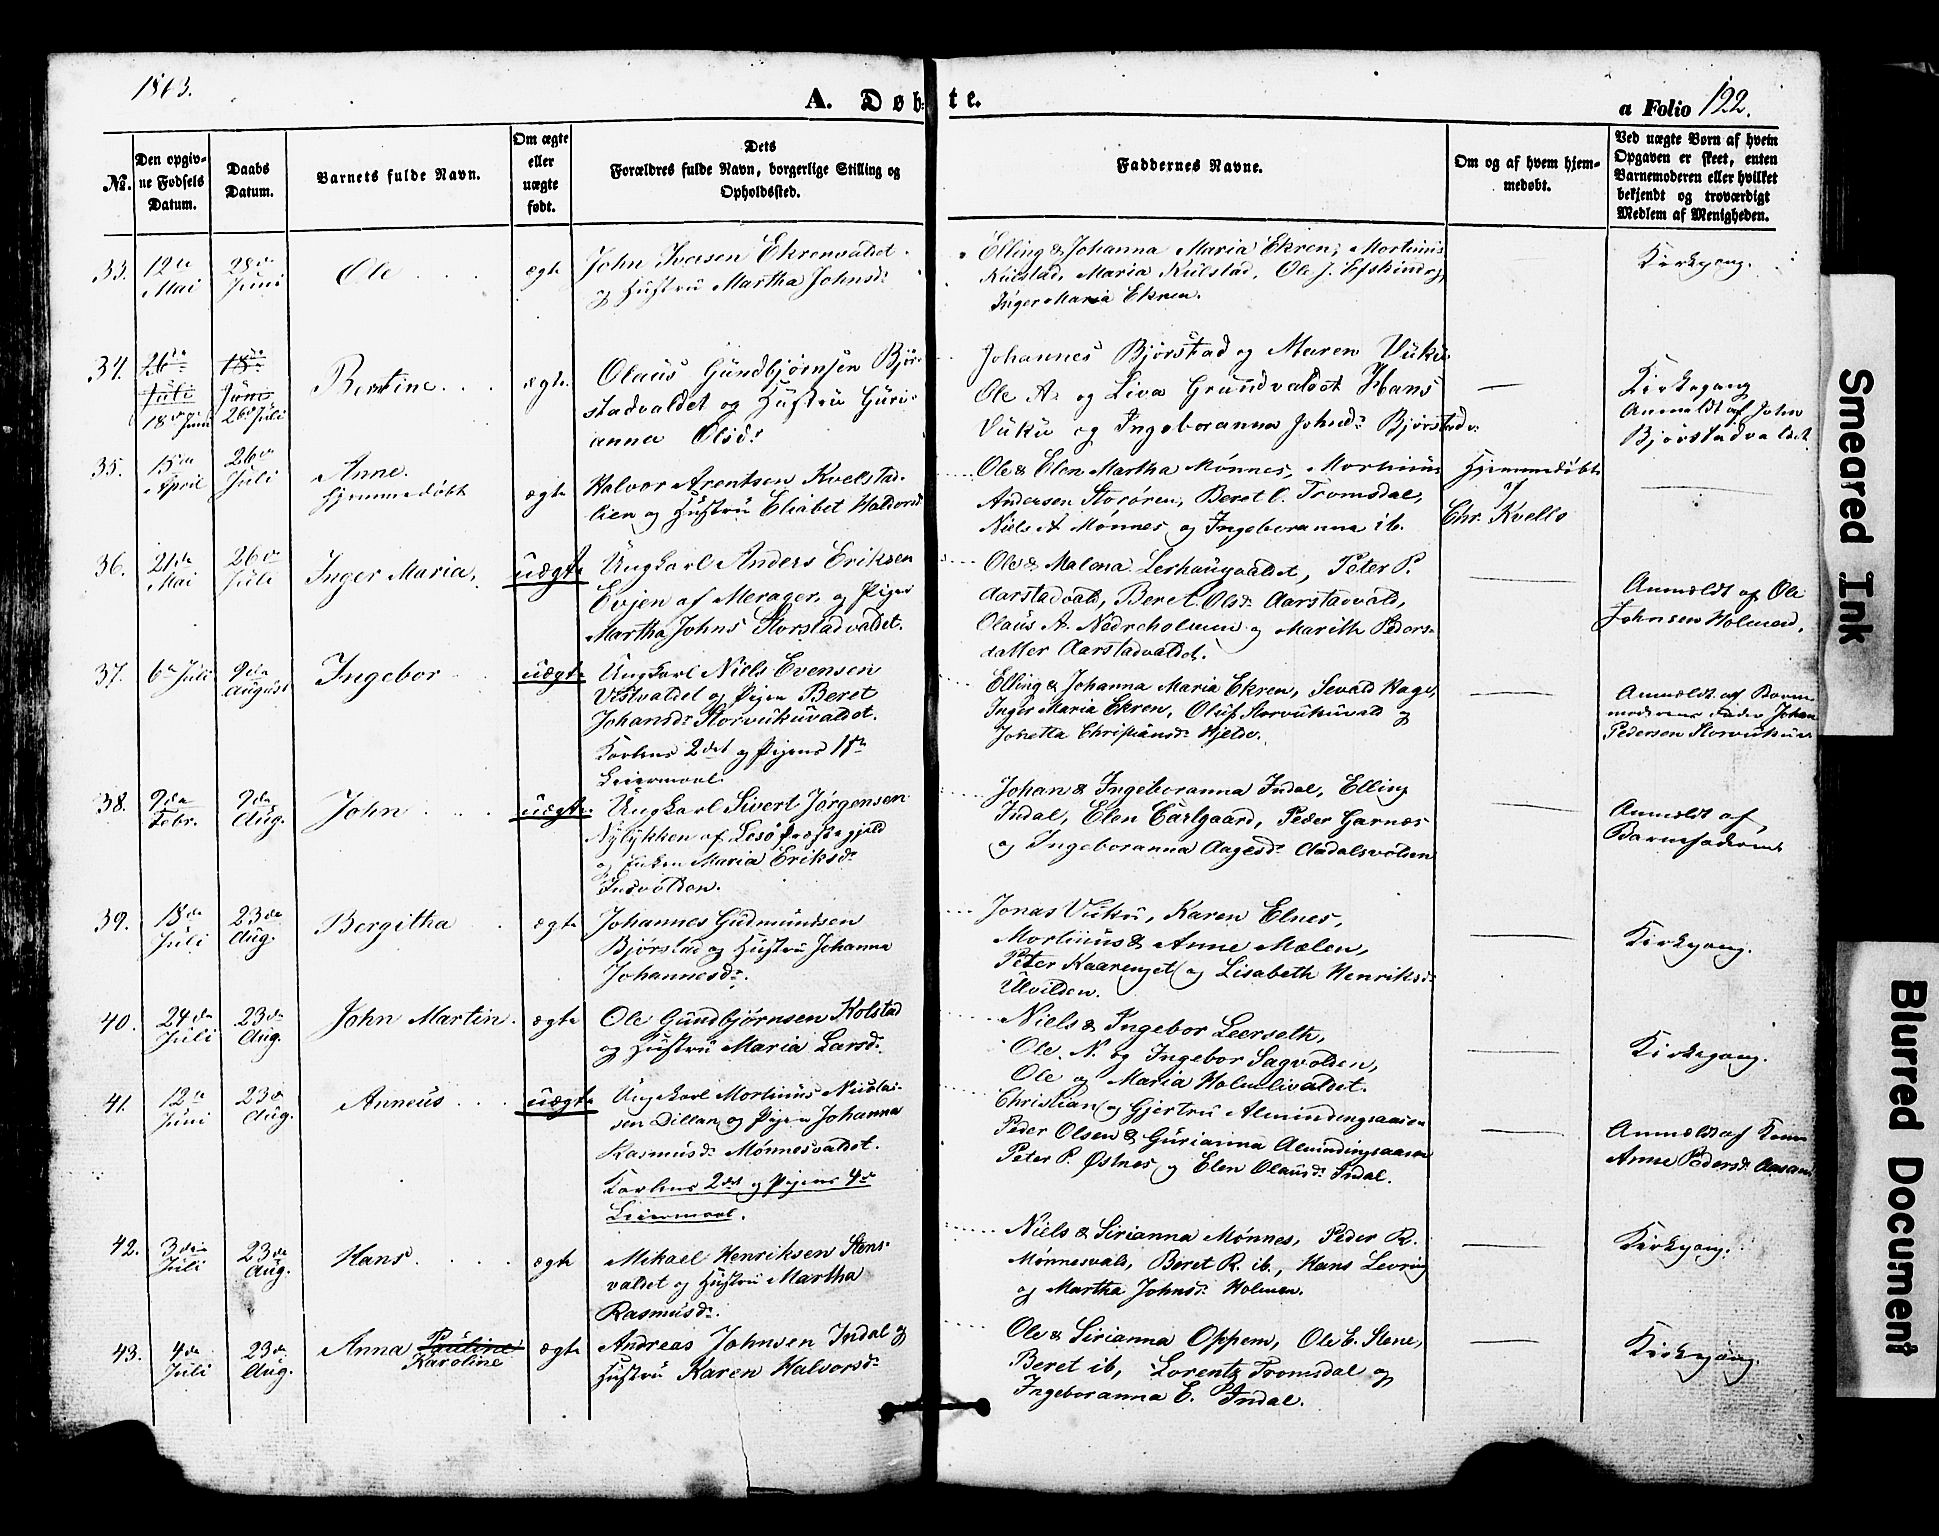 1863.
A. Døbte.
a Folio 122.
No.
Den opgiv-
ne Fødsels
Datum.
Daabs
Datum.
Barnets fulde Navn.
Om ægte
eller
uægte
født.
Dets
Forældres fulde Navn, borgerlige Stilling og
Opholdssted.
Faddernes Navne.
Om og af hvem hjem-
medøbt.
Ved uægte Børn af hvem
Opgaven er skeet, enten
Barnemoderen eller hvilket
bekjendt og troværdigt
Medlem af Menigheden.
33.
12te
Mai
28de
Juni
Ole
ægte
John Iversen Ekrenvaldet
og Hustru Martha Johnsd:
Elling & Johanna Maria Ekren, Mortinus
Kulstad, Maria Kulstad, Ole J.
Inger Maria Ekren.
Kirkegang.
34.
26de
Juli
18de Juni
18de
Juni
26de Juli
Berntine
ægte
Olaus Gundbjørnsen Bjør-
stadvaldet og Hustru Guri-
anna Olsd:
Johannes Bjørstad og Maren Vuku
Ole A. og Liva Grundvaldet Hans
Vuku og Ingeboranna Johnsd: Bjørstadv.
Kirkegang
Anmeldt af John
Bjørstadvaldet
35.
15de
April
26de
Juli
Anne.
Hjemmedøbt
ægte
Halvor Arentsen Kvelstad-
lien og Hustru Elisabet Haldorsd
Ole & Elen Martha Mønnes, Mortinus
Andersen Storøren, Beret O. Tromsdal,
Niels A Mønnes og Ingeboranna ib.
Hjemmedøbt
af
Chr. Kvello
36.
21de
Mai
26de
Juli
Inger Maria,
uægte
Ungkarl Anders Eriksen
Evjen af Merager, og Pigen
Martha Johns Storstadvaldet.
Ole & Malena Lerhaugvaldet, Peter P.
Aarstadvald, Beret Olsd: Aarstadvald,
Olaus A. Nedreholmen og Marith Peders-
datter Aarstadvaldet.
Anmeldt af Ole
Johnsen Holmen,
37.
6te Juli
9de
August
Ingebor
uægte
Ungkarl Niels Evensen
Vestvaldet og Pigen Beret
Johansd: Storvukuvaldet.
Karlens 2det og Pigens 1ste
Leiermaal.
Elling & Johanna Maria Ekren, Sevald Hage,
Inger Maria Ekren, Oluf Storvukuvald og
Johetta Christiansd: Hjelde.
Anmeldt af Barne-
moderens Fader Johan
Pedersen Storvukuv
38.
9de
Febr.
9de
Aug.
John
uægte
Ungkarl Sivert Jørgensen
Nylykken af Lesø Præstegjeld
og Enken Maria Eriksd:
Indvolden.
Johan & Ingeboranna Indal, Elling
Indal, Elen Carlgaard, Peder Garnæs
og Ingeboranna Aagesd: Aadalsvolden
Anmeldt af
Barnefaderen
39.
18de
Juli
23de
Aug.
Bergitha
ægte
Johannes Gudmundsen
Bjørstad og Hustru Johanna
Johannesd:
Jonas Vuku, Karen Elnes,
Mortinus & Anne Mælen,
Peter Kaarenget og Lisabeth Henriksd:
Ulvilden.
Kirkegang.
40.
24de
Juli
23de
Aug.
John Martin.
ægte
Ole Gundbjørnsen Kolstad
og Hustru Maria Larsd:
Niels & Ingebor Leerseth,
Ole N. og Ingebor Sagvolden,
Ole og Maria Holmlivaldet.
Kirkegang.
41.
12te
Juni
23de
Aug.
Anneus
uægte
Ungkarl Mortinus Nicolai-
sen Dillan og Pigen Johanna
Rasmusd: Mønnesvaldet.
Karlens 2det og Pigens 4de
Leiermaal.
Christian og Gjertru Almindingsaasen
Peder Olsen & Gurianna Almindingsaasen
Peter P. Østnes og Elen Olausd: Indal.
Anmeldt af Konen
Anne Pedersd: Aasan
42.
3die
Juli
23de
Aug.
Hans
ægte
Mikael Henriksen Stens-
valdet og Hustru Martha
Rasmusd:
Niels & Sirianna Mønnes, Peder R.
Mønnesvald, Beret R. ib., Hans Levring
og Martha Johnsd: Holmen.
Kirkegang.
43.
4de
Juli
23de
Aug.
Anna Pauline
Karoline
ægte
Andreas Johnsen Indal og
Hustru Karen Halvorsd:
Ole & Sirianna Oppem, Ole E. Stene,
Beret ib, Lorentz Tromsdal og
Ingeboranna E. Indal.
Kirkegang.
Smeared Ink
Blurred Document